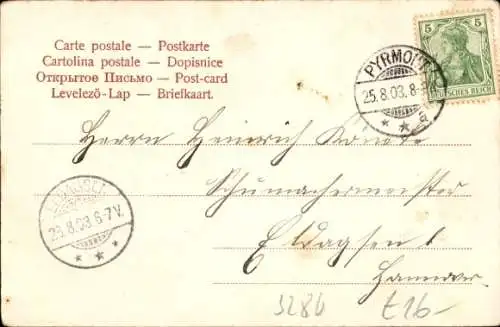 Carte postale — Postkarte
Cartolina postale — Dopisnice
Открытое Письмо — Post-card
Levelező-Lap — Briefkaart.
5 5
DEUTSCHES REICH
PYRMONT
25.8.03. 8-
Herrn Heinrich
Schumachermeister
Eldagsen
Hannover
26.8.03. 6-7V.
3286
£16-